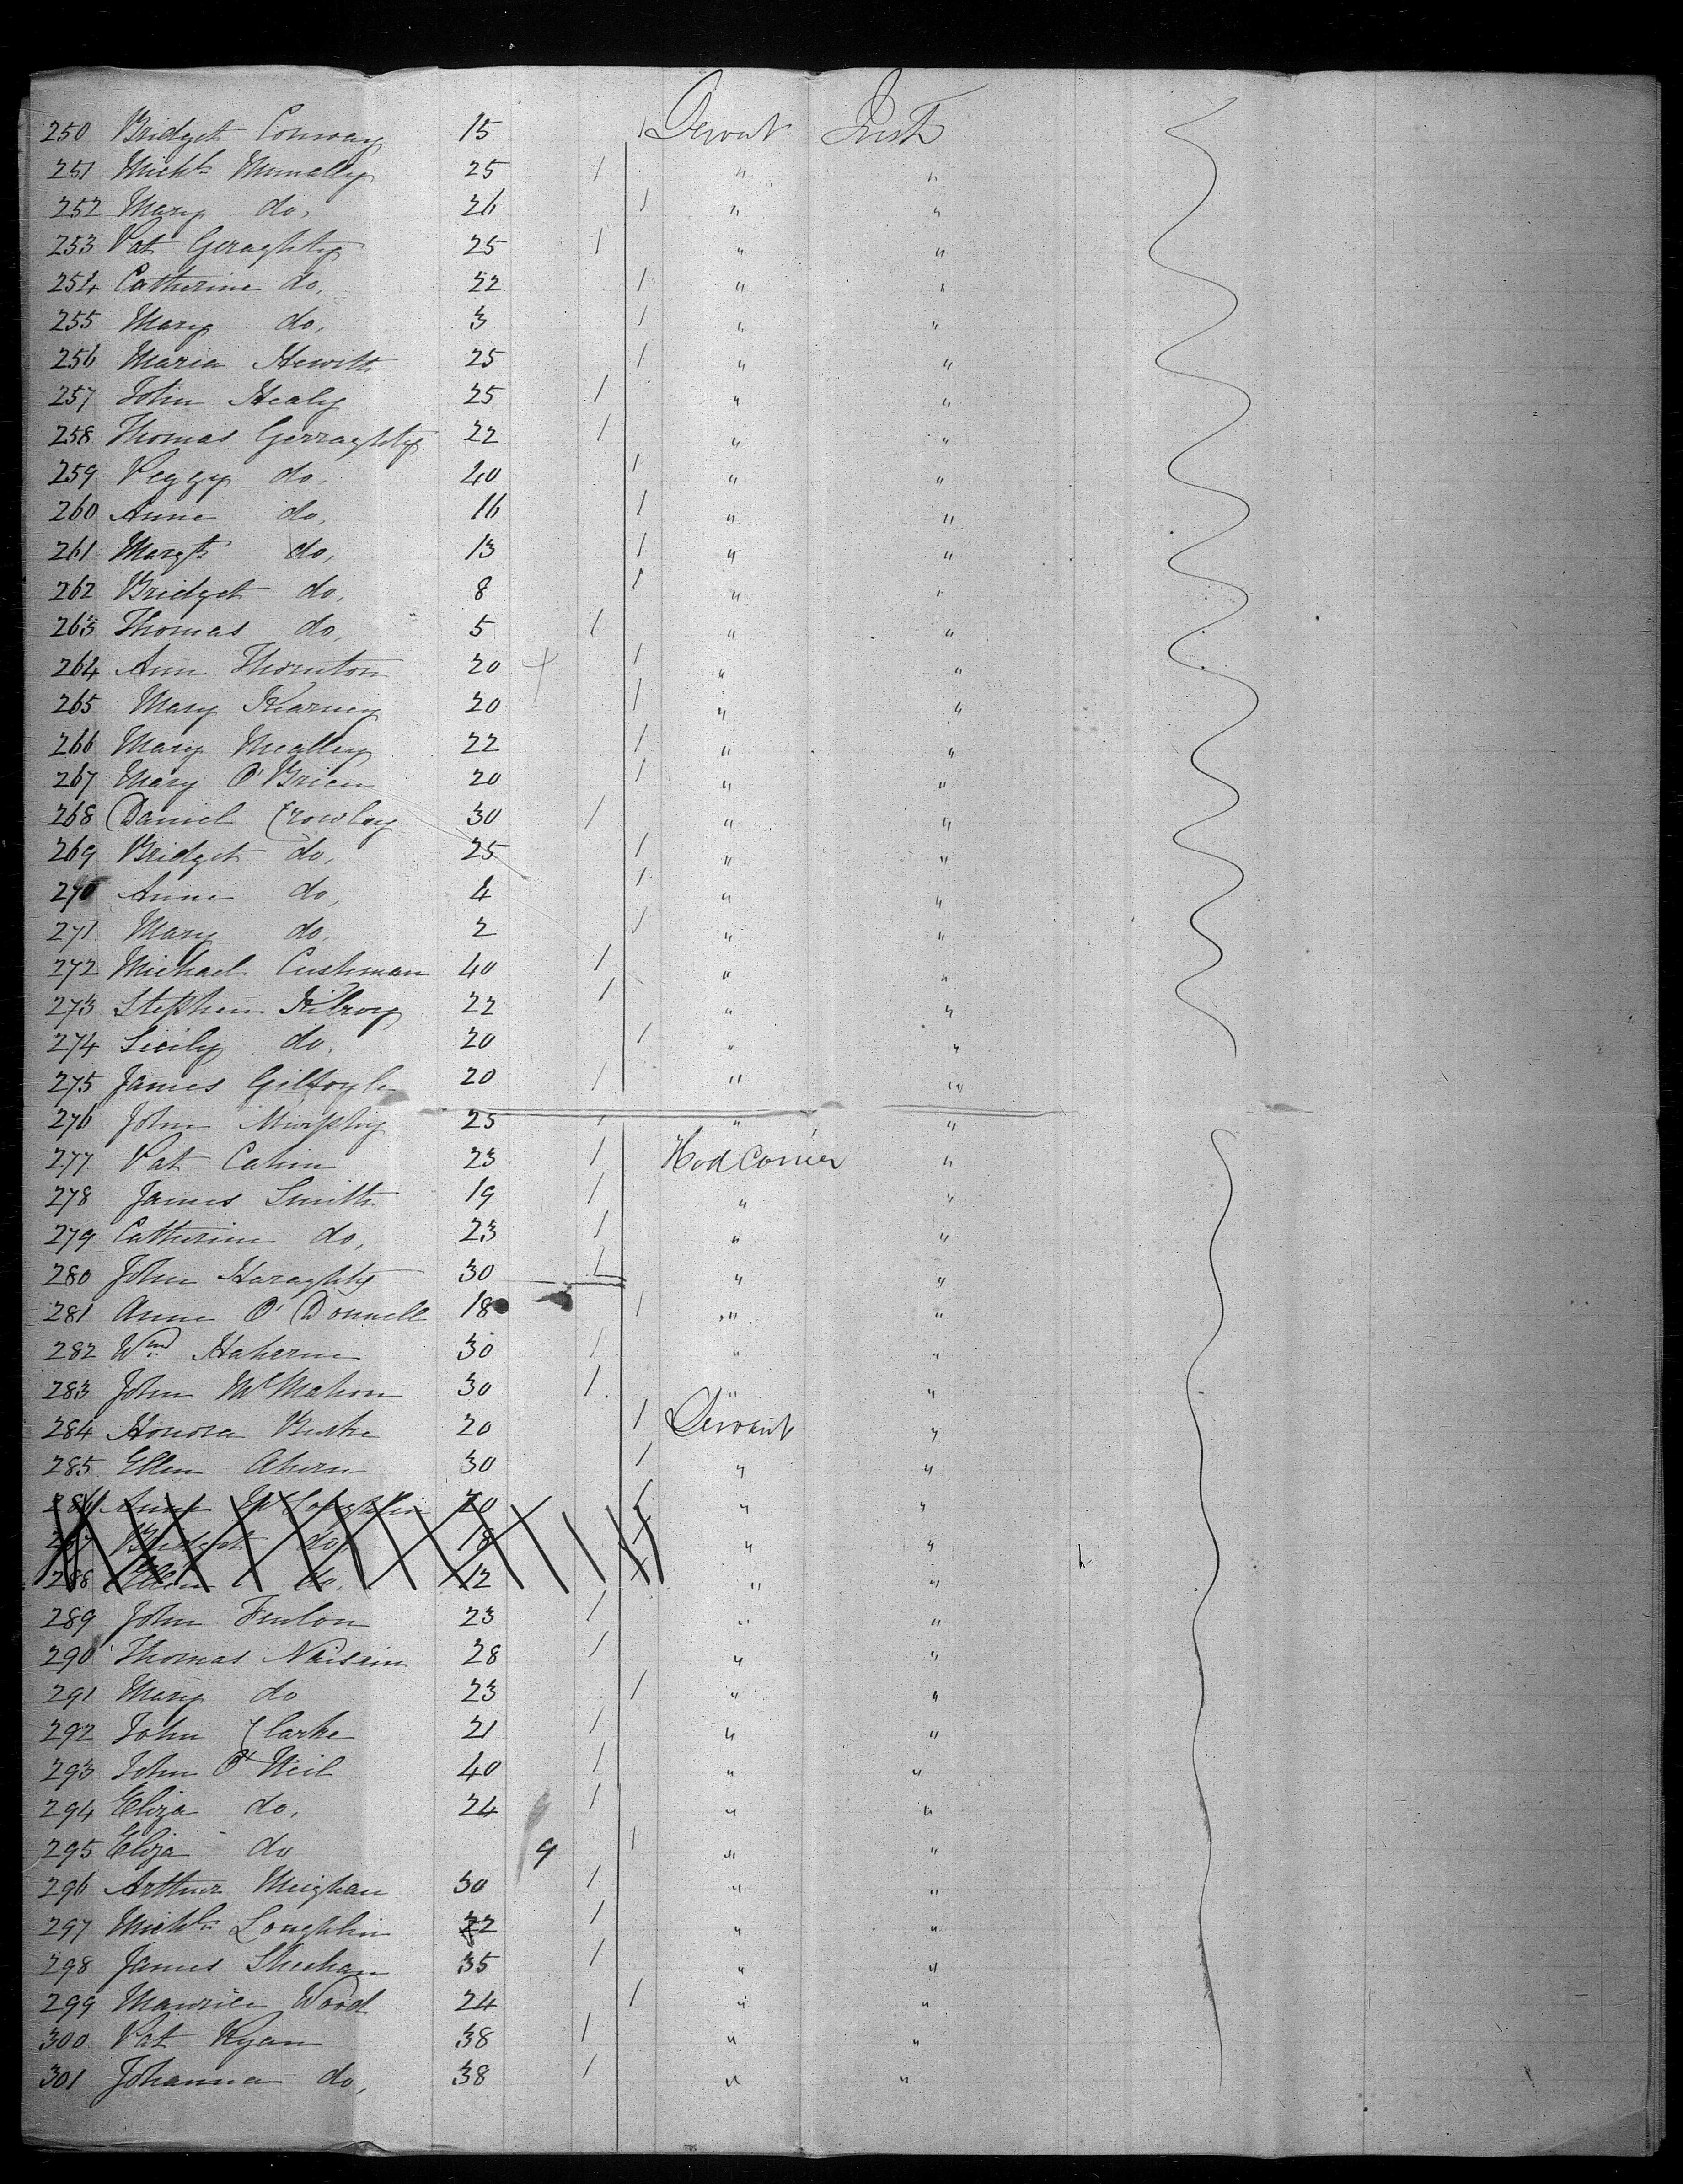 250 Bridget Conway 15 1 Servant Irish
251 Michl Munally 25 1 " "
252 Mary do, 26 1 " "
253 Pat Geraghty 25 1 " "
254 Catherine do, 22 1 " "
255 Mary do, 3 1 " "
256 Maria Hewitt 25 1 " "
257 John Healy 25 1 " "
258 Thomas Gerraghty 22 1 " "
259 Peggy do. 40 1 " "
260 Anne do, 16 1 " "
261 Margt do, 13 1 " "
262 Bridget do, 8 1 " "
263 Thomas do, 5 1 " "
264 Ann Thornton 20 + 1 " "
265 Mary Kearney 20 1 " "
266 Mary Meally 22 1 " "
267 Mary O'Brien 20 1 " "
268 Daniel Crowley 30 1 " "
269 Bridget do, 25 1 " "
270 Anne do, 4 1 " "
271 Mary do, 2 1 " "
272 Michael Cushman 40 1 " "
273 Stephen Kilroy 22 1 " "
274 Sicily do, 20 1 " "
275 James Gilfoyle 20 1 " "
276 John Murphy 25 1 " "
277 Pat Cahin 23 1 Hod Carrier "
278 James Smith 19 1 " "
279 Catherine do, 23 1 " "
280 John Haraghty 30 1 " "
281 Anne O'Donnell 18 1 " "
282 Wm Hahern 30 1 " "
283 John McMahon 30 1 " "
284 Honora Burke 20 1 Servant "
285 Ellen Ahern 30 1 " "
286 Anne McLoughlin 20 1 " "
287 Bridget do, 18 1 " "
288 Ellen do, 12 1 " "
289 John Fenlon 23 1 " "
290 Thomas 28 1 " "
291 Mary do 23 1 " "
292 John Clarke 21 1 " "
293 John O'Neil 40 1 " "
294 Eliza do, 24 1 " "
295 Eliza do 9 1 " "
296 Arthur Meighan 30 1 " "
297 Michl Loughlin 22 1 " "
298 James Sheehan 35 1 " "
299 Maurice Wood 24 1 " "
300 Pat Ryan 38 1 " "
301 Johanna do, 38 1 " "